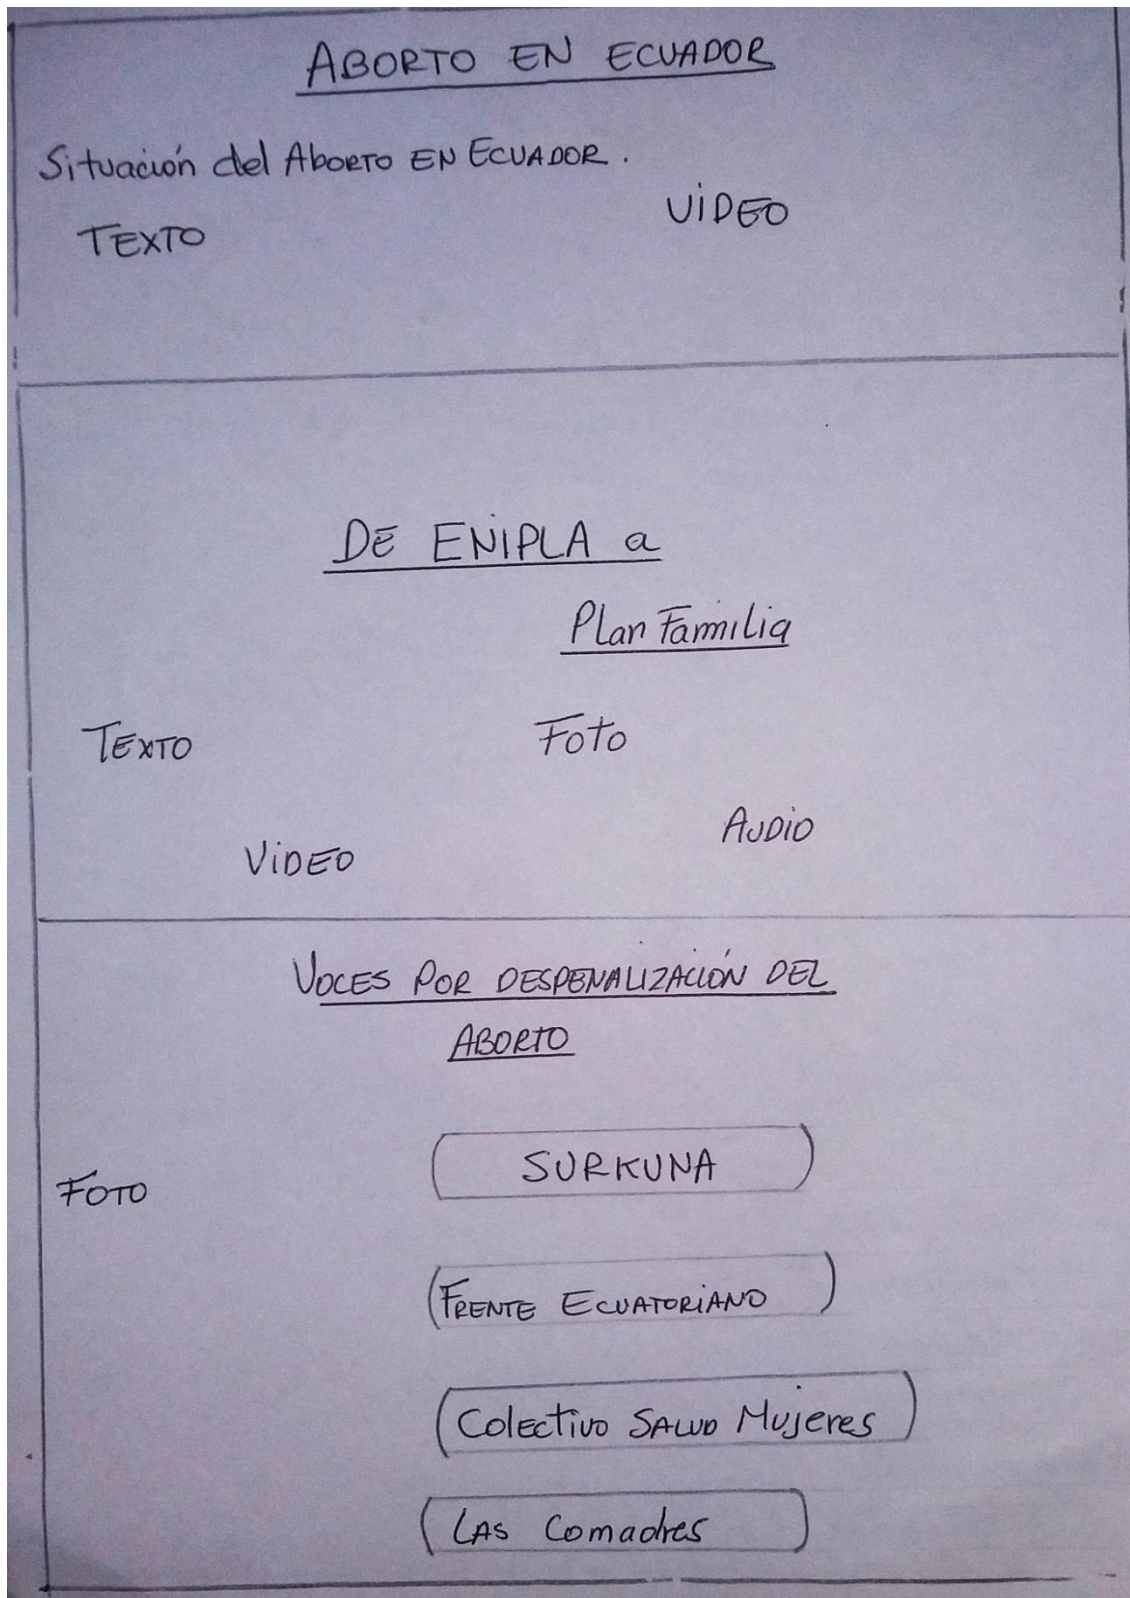 ABORTO EN ECUADOR
Situación del Aborto EN ECUADOR.
VIDEO
TEXTO
DE ENIPLA a
Plan Familia
TEXTO
Foto
AUDIO
VIDEO
VOCES POR DESPENALIZACIÓN DEL
ABORTO
SURKUNA
FOTO
FRENTE ECUATORIANO
Colectivo SALUD Mujeres
LAS Comadres